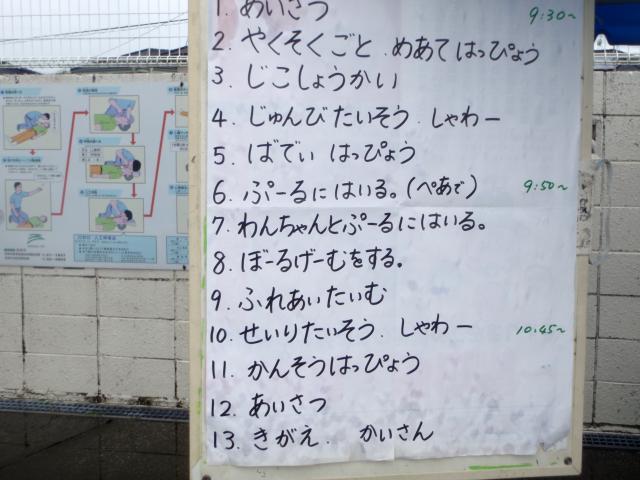 1. あいさつ 9:30~
2. やくそくごと . めあてはっぴょう
3. じこしょうかい
4. じゅんびたいそう . しゃわー
5. ばでぃ はっぴょう
6. ぷーるにはいる。(ぺあで) 9:50~
7. わんちゃんとぷーるにはいる。
8. ぼーるげーむをする。
9. ふれあいたいむ
10. せいりたいそう . しゃわー 10:45~
11. かんそうはっぴょう
12. あいさつ
13. きがえ . かいさん